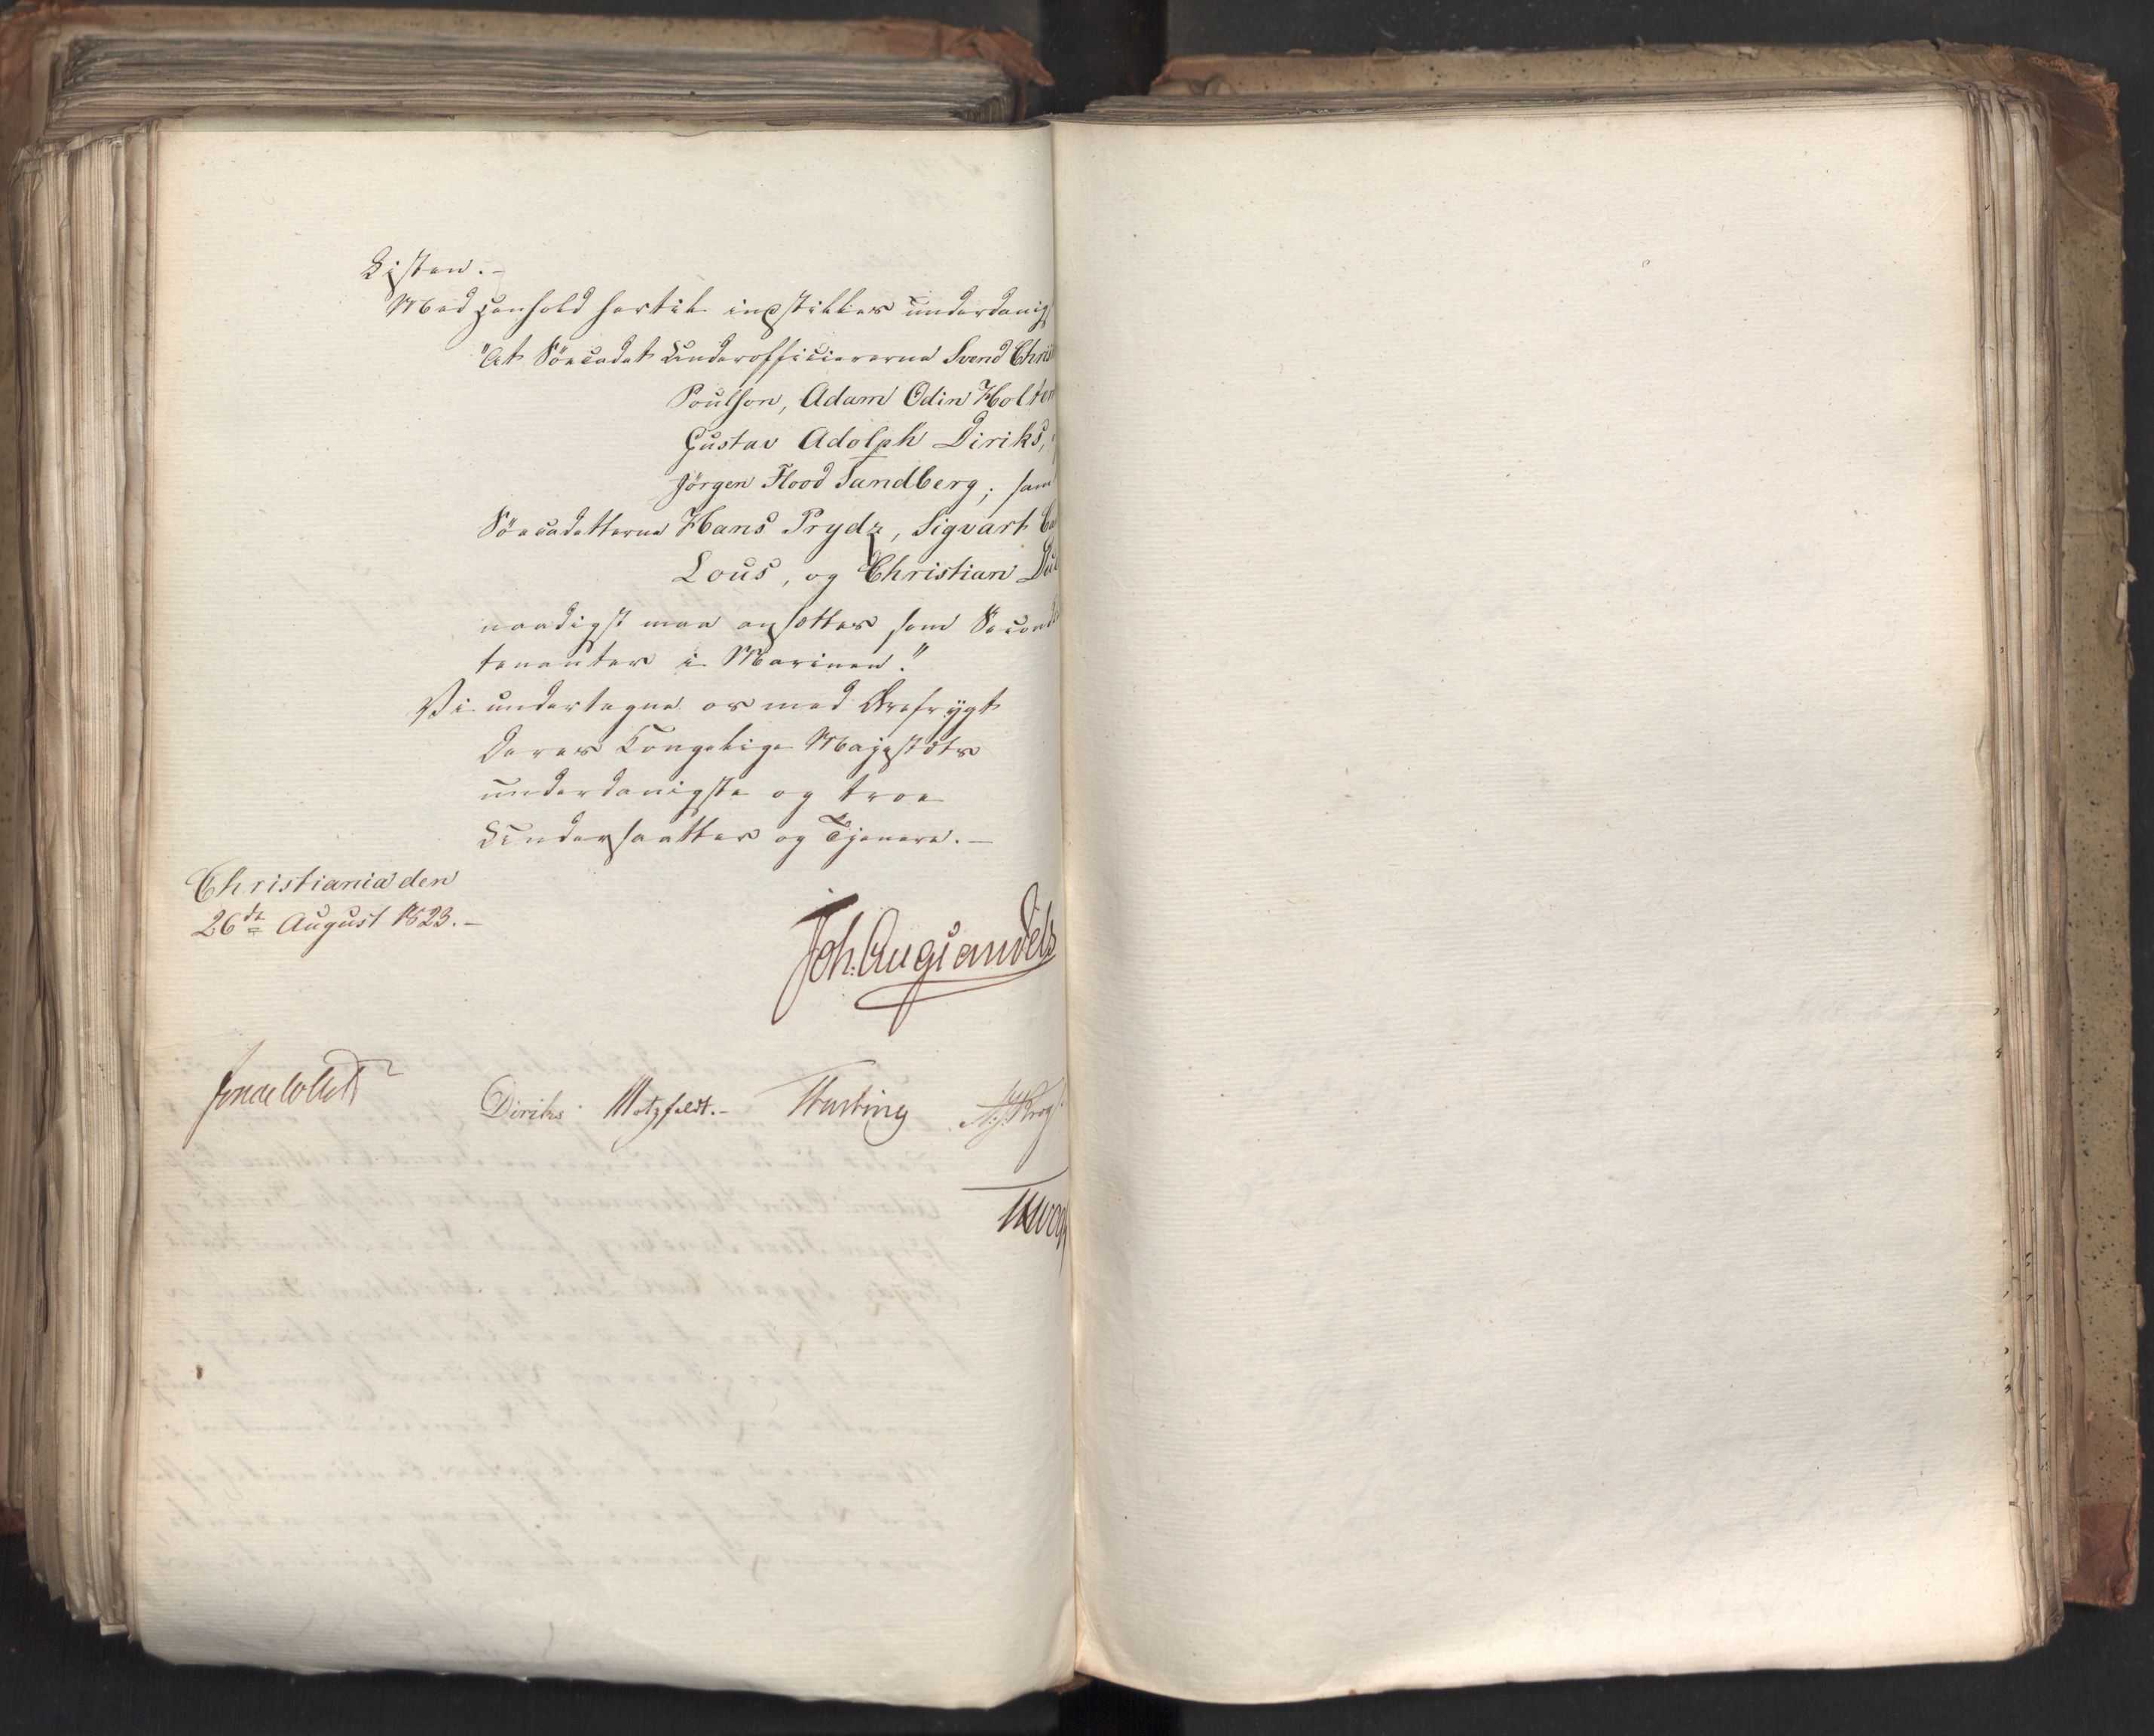 Listen. —
Med Henhold hertil indstilles underdanigst
"At Söecadet Underofficiererne Svend Chris
Poulson, Adam Odin Holter
Gustav Adolph Diriks,
Jörgen Flood Sandberg; samt
Söecadetterne Hans Prydz, Sigvart Ca
Lous, og Christian Due
naadigst maa ansættes som Second
tenanter i Marinen."
Vi undertegne os med Ærefrygt
Deres Kongelige Majestæts
underdanigste og troe
Undersaatter og Tjenere. —
Christiania den
26de August 1823. —
Joh. Aug: Sandels
Jonas Collett
Diriks. Motzfeldt. — Krog